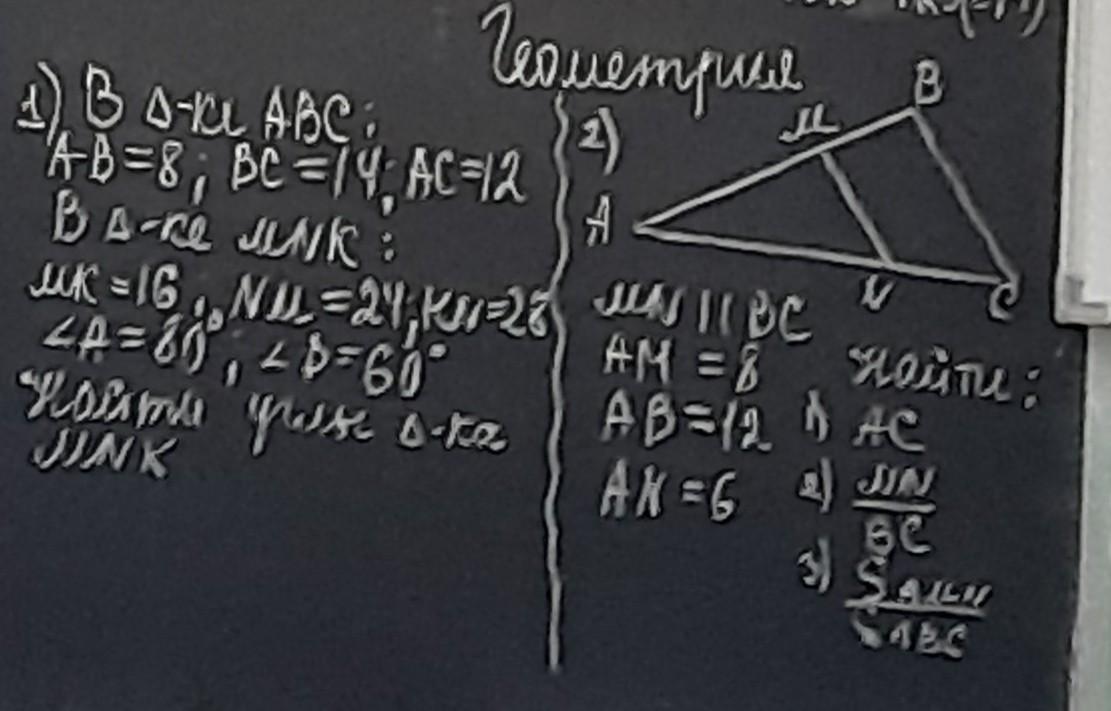 Геометрия
1) В Δ-ке ABC:
AB=8; BC=14; AC=12
В Δ-ке MNK:
MK=16; NM=24; KN=28
∠A=80°; ∠B=60°
Найти углы Δ-ка
MNK
2)
A
M
B
N
C
MN || BC
AM = 8
AB=12
AN=6
Найти:
1) AC
2) MN
BC
3) S AMN
S ABC